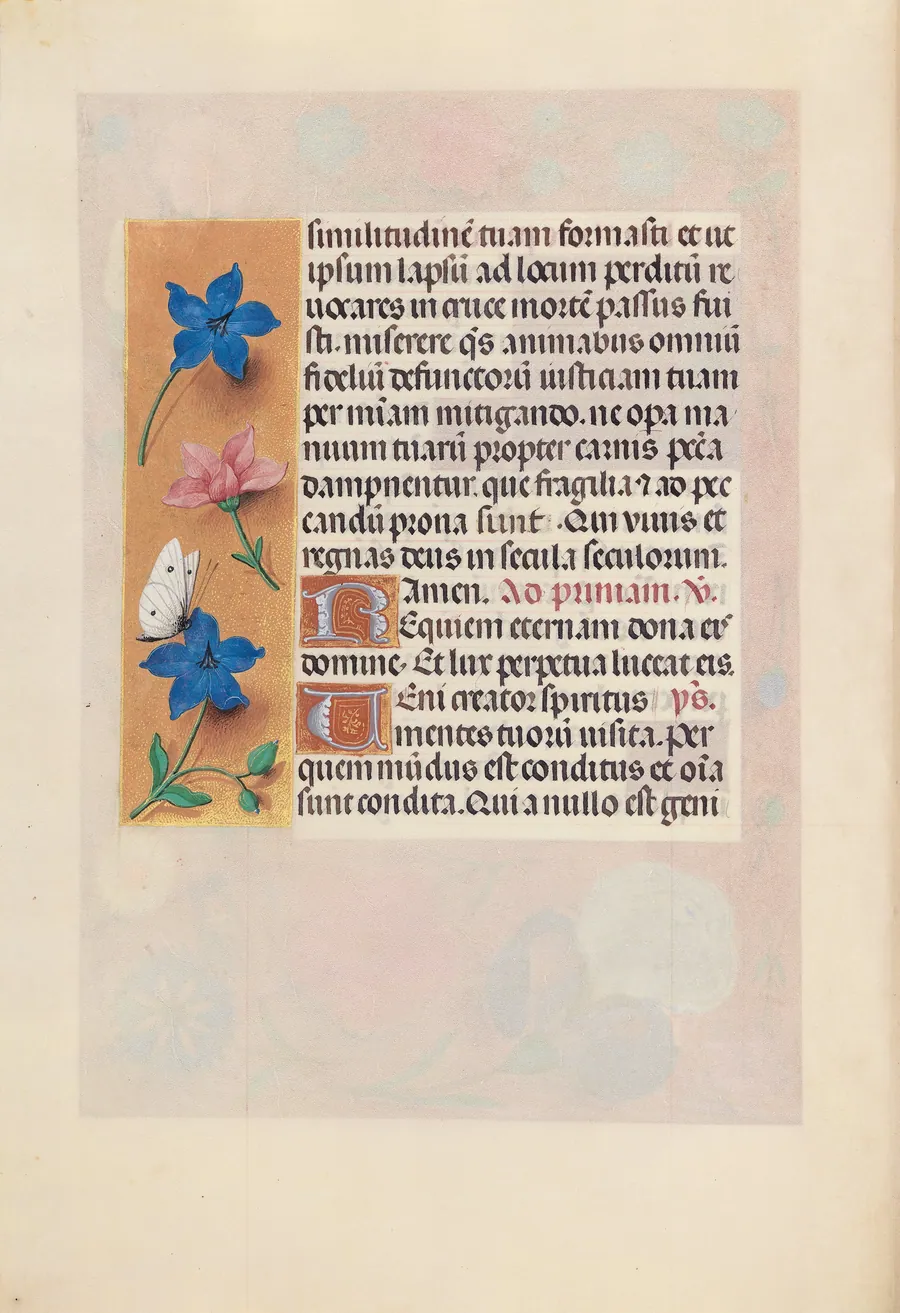 similitudinē tuam formasti et ut
ipsum lapsū ad locum perditū re
uocares in cruce mortē passus fui
sti. miserere q̄s animabus omniū
fideliū defunctorū iusticiam tuam
per mīam mitigando. ne opa ma
nuum tuarū propter carnis pc̄ca
dampnentur. que fragilia ⁊ ad pec
candū prona sunt. Qui viuis et
regnas deus in secula seculorum.
Amen. Ad primam. V̄.
REquiem eternam dona eis
domine. Et lux perpetua luceat eis.
UEni creator spiritus ps̄.
mentes tuorū uisita. Per
quem mūdus est conditus et oīa
sunt condita. Qui a nullo est geni